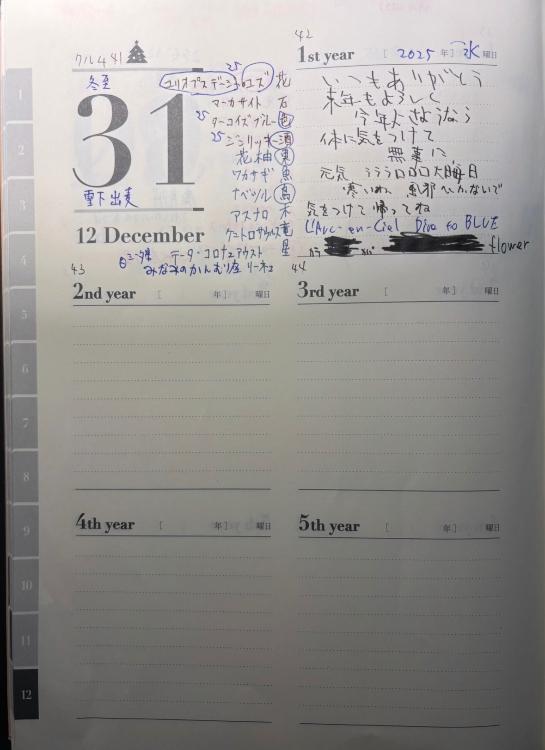 42
クル481
25
冬至
ユリオプスデージー ロエズ 花
マーカサイト 石
25 ターコイズブルー 色
25 ジンリッキー 酒
花柚 果
ワカサギ 魚
ナベヅル 鳥
アスナロ 木
ケントロサウルス 竜
31
雪下出麦
12 December
テータ・コロナェアウスト 星
みなみのかんむり座
1st year [ 2025 年] 水 曜日
いつもありがとう
来年もよろしく
今年はさようなら
体に気をつけて
無事に
元気 うううロロロ大晦日
寒いね 風邪ひかないで
気をつけて帰ってね
L'Arc-en-Ciel Dive to BLUE
flower
43
2nd year [ 年] 曜日
44
3rd year [ 年] 曜日
4th year [ 年] 曜日
5th year [ 年] 曜日
1
2
3
4
5
6
7
8
9
10
11
12